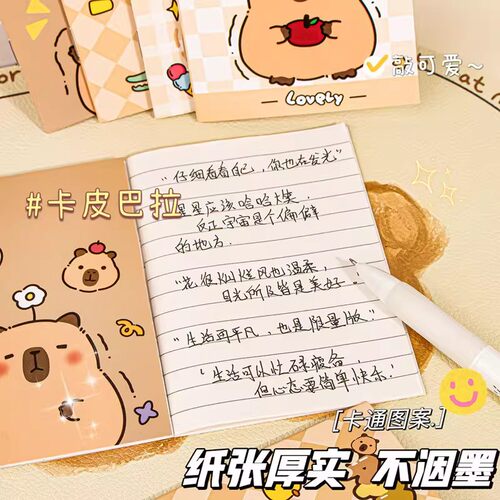 敲可爱~
Lovely
"仔细看看自己，你也在发光"
#卡皮巴拉
星星应该哈哈大笑，
反正宇宙是个偏僻
的地方.
"花很灿烂风也温柔，
目光所及皆是美好."
"生活再平凡，也是限量版."
"生活可以忙碌疲备
但心态要简单快乐."
[卡通图案.]
纸张厚实 不洇墨